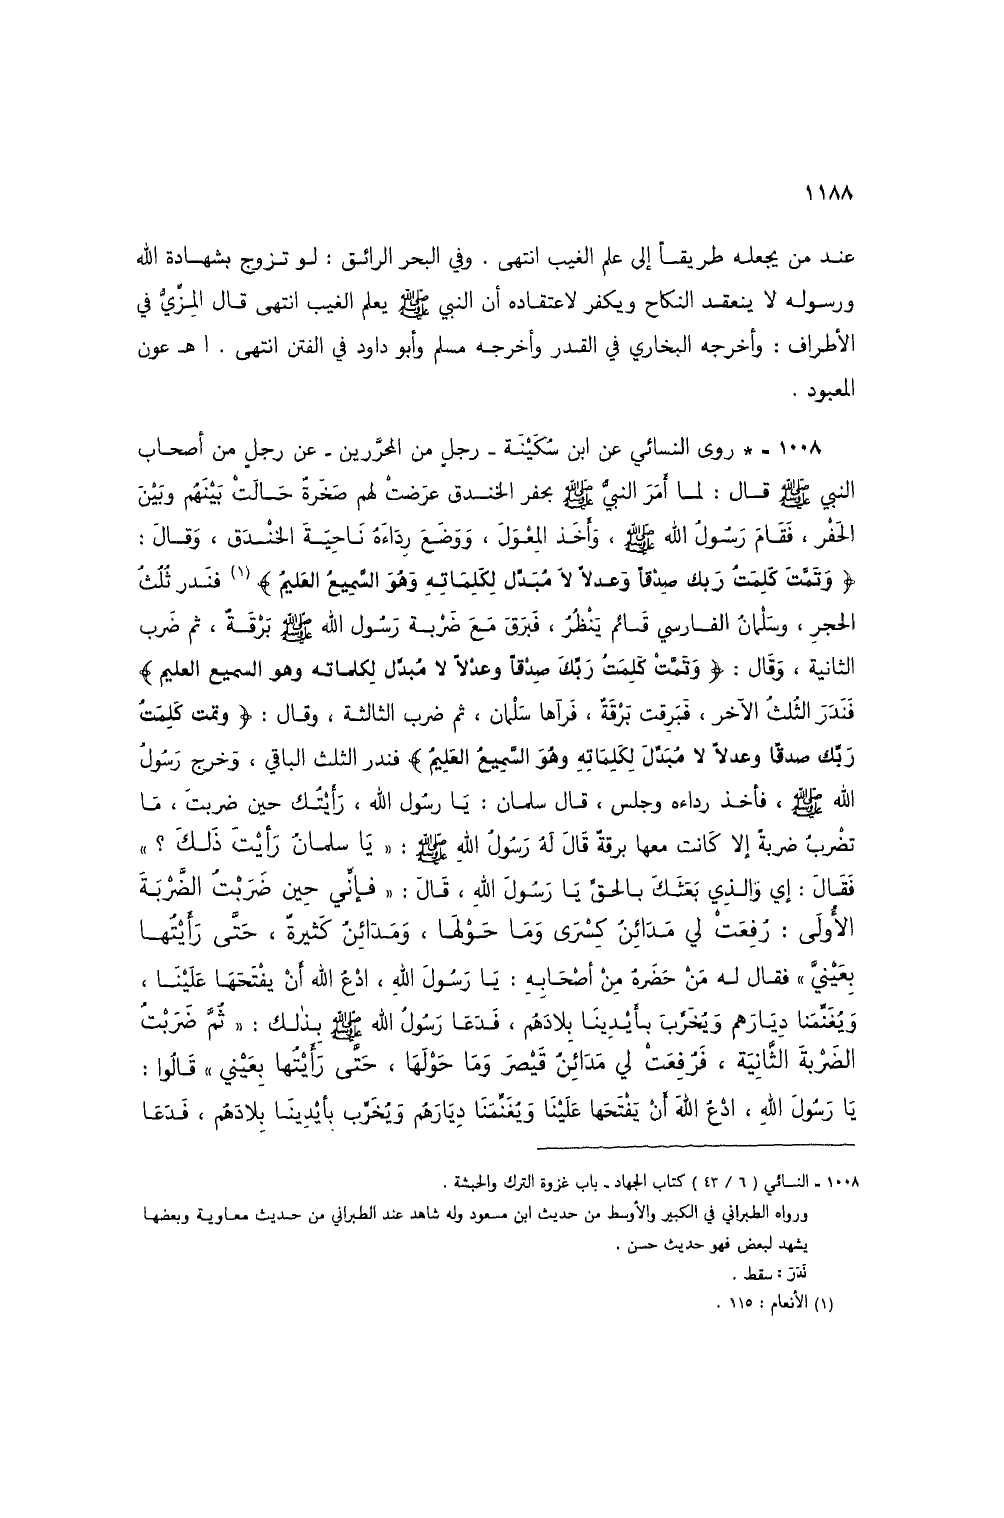 ١١٨٨
عند من يجعله طريقاً إلى علم الغيب انتهى . وفي البحر الرائق : لو تزوج بشهادة الله
ورسوله لا ينعقد النكاح ويكفر لاعتقاده أن النبي ﷺ يعلم الغيب انتهى قال المِزِّيُّ في
الأطراف : وأخرجه البخاري في القدر وأخرجه مسلم وأبو داود في الفتن انتهى . ا هـ عون
المعبود .
١٠٠٨ - * روى النسائي عن ابن سُكَيْنَة - رجلٍ من المحرَّرين - عن رجلٍ من أصحاب
النبي ﷺ قال : لما أَمَرَ النبيُّ ﷺ بحفر الخندق عرَضتْ لهم صَخَرةٌ حَالَتْ بَيْنَهُم وبَيْنَ
الحَفْر ، فَقَامَ رَسُولُ الله ﷺ ، وَأَخَذ المِعْوَلَ ، وَوَضَعَ رِدَاءَهُ نَاحِيَةَ الخَنْدَق ، وَقَالَ :
﴿ وَتَمَّتَ كَلِمَتُ رَبك صِدْقاً وَعدلاً لاَ مُبَدّل لِكَلِمَاتِهِ وَهُوَ السَّمِيعُ العَليمُ ﴾ (١) فنَدر ثُلُثُ
الحجرِ ، وسَلْمانُ الفارسي قَائم يَنْظُرُ ، فَبَرَقَ مَعَ ضَرْبة رَسُول الله ﷺ بَرْقَةٌ ، ثم ضَرب
الثانية ، وَقَال : ﴿ وَتَمَّتْ كَلِمَتُ رَبِّكَ صِدْقاً وعدْلاً لا مُبدّل لِكلماته وهو السميع العليم ﴾
فَنَدَرَ الثُلثُ الآخر ، فَبَرِقت بَرْقَةٌ ، فَرآها سَلْمان ، ثم ضرب الثالثة ، وقال : ﴿ وتمت كَلِمَتُ
رَبِّك صدقًا وعدلاً لا مُبَدِّلَ لِكَلِمَاتِهِ وهُوَ السَّمِيعُ العَليمُ ﴾ فندر الثلث الباقي ، وَخرج رَسُولُ
الله ﷺ ، فأخذ رداءه وجلس ، قال سلمان : يَا رسُول الله ، رَأَيْتُك حين ضربتَ ، مَا
تضْربُ ضربةً إلا كَانت معها برقةٌ قَالَ لَهُ رَسُولُ اللهِ ﷺ : « يَا سلمانُ رَأَيْتَ ذَلكَ ؟ »
فَقَالَ : إي وَالذِي بَعَثَكَ بالحقِّ يَا رَسُولَ اللهِ ، قَالَ : « فإنِّي حِين ضَرَبْتُ الضَّرْبَةَ
الأُولَى : رُفِعَتْ لي مَدَائِنُ كِسْرَى وَمَا حَوْلَهَا ، وَمَدَائِنُ كَثيرةٌ ، حَتَّى رَأَيْتُها
بِعَيْنيَّ » فقال له مَنْ حَضَرهُ مِنْ أصْحَابِهِ : يَا رَسُولَ اللهِ ، ادْعُ الله أَنْ يفْتَحَهَا عَلَيْنَا ،
وَيُغَنِّمَنا دِيَارَهم وَيُخَرِّبَ بأيْدِينَا بِلادَهُم ، فَدَعَا رَسُولُ الله ﷺ بِذلك : « ثُمَّ ضَرَبْتُ
الضَرْبةَ الثَّانِيَة ، فَرُفِعَتْ لي مَدَائِنُ قَيْصرَ وَمَا حَوْلَهَا ، حَتَّى رَأَيْتُها بِعَيْنِي » قَالُوا :
يَا رَسُولَ اللهِ ، ادْعُ اللهَ أَنْ يَفْتَحَها عَلَيْنَا وَيُغَنِّمَنَا دِيَارَهُم وَيُخَرِّب بأيْدِينَا بِلادَهُم ، فَدَعَا
١٠٠٨ - النسائي ( ٦ / ٤٣ ) كتاب الجهاد - باب غزوة الترك والحبشة .
ورواه الطبراني في الكبير والأوسط من حديث ابن مسعود وله شاهد عند الطبراني من حديث معاوية وبعضها
يشهد لبعض فهو حديث حسن .
نَدَرَ : سقط .
(١) الأنعام : ١١٥ .